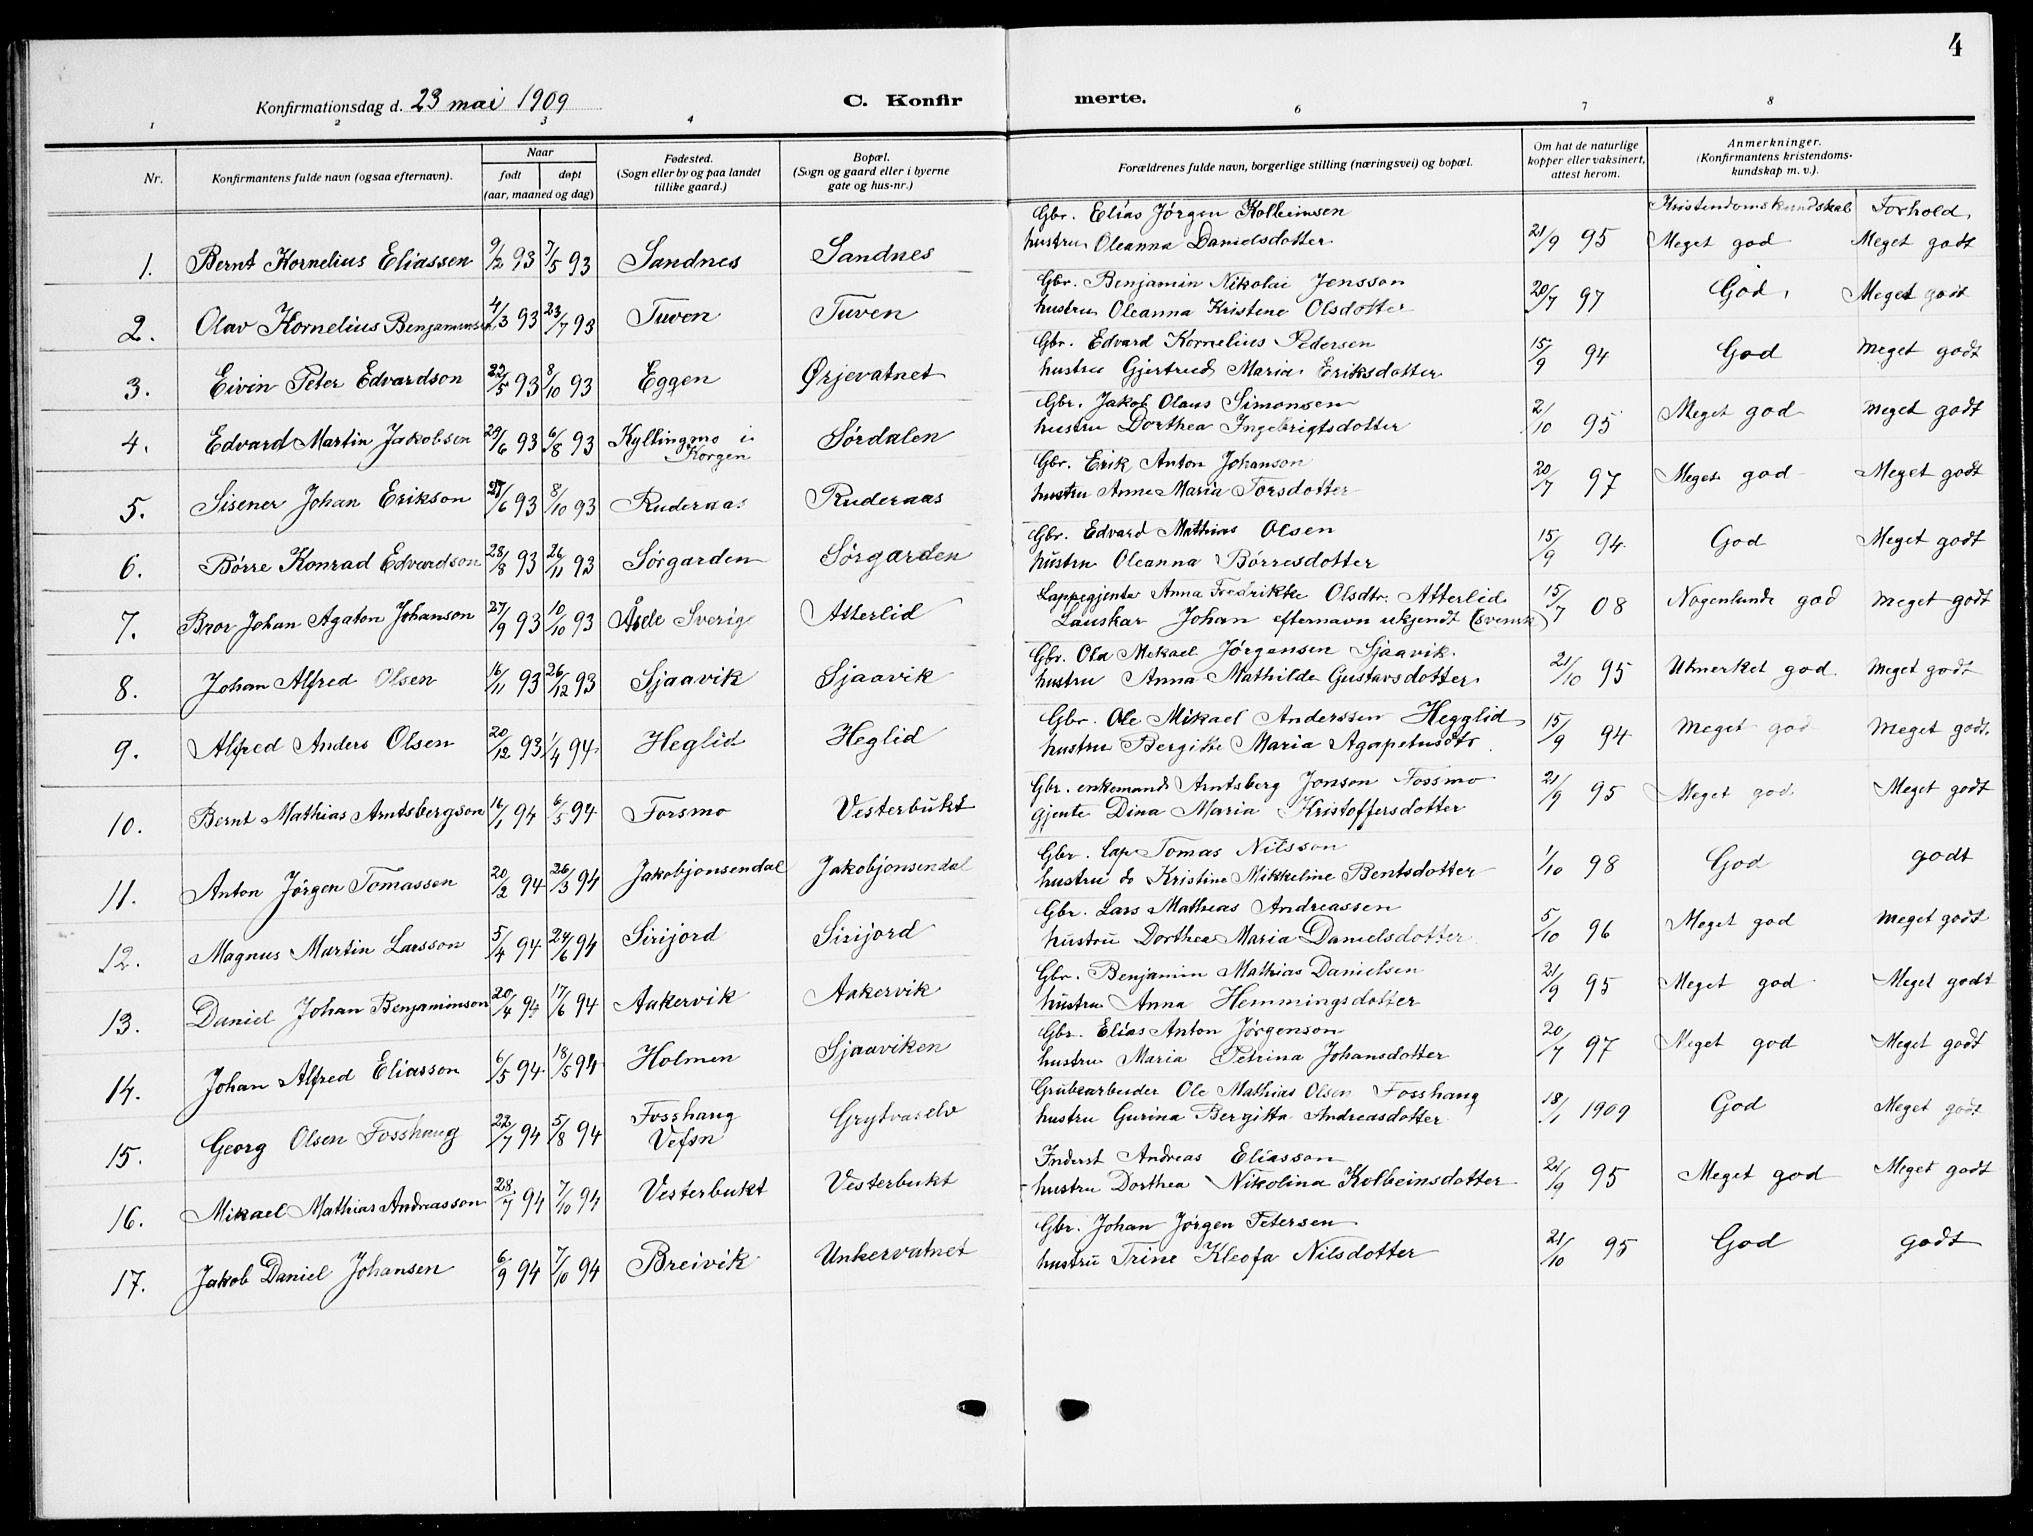 4
Konfirmationsdag d. 23 mai 1909 C. Konfir merte.
1 2 3 4 6 7 8
Nr. Konfirmantens fulde navn (ogsaa efternavn). Naar født døpt (aar, maaned og dag) Fødested. (Sogn eller by og paa landet tillike gaard.) Bopæl. (Sogn og gaard eller i byerne gate og hus-nr.) Forældrenes fulde navn, borgerlige stilling (næringsvei) og bopæl. Om hat de naturlige kopper eller vaksinert, attest herom. Anmerkninger. (Konfirmantens kristendoms-kundskap m. v.).
Kristendomskundskab Forhold.
1. Bernt Kornelius Eliassen 9/2 93 7/5 93 Sandnes Sandnes Gbr. Elias Jørgen Kolbeinsen
hustru Oleanna Danielsdotter 21/9 95 Meget god Meget godt
2. Olav Kornelius Benjaminsen 4/3 93 23/7 93 Tuven Tuven Gbr. Benjamin Nikolai Jensson
hustru Oleanna Kristene Olsdotter 20/7 97 God. Meget godt
3. Eivin Peter Edvardson 22/5 93 8/10 93 Eggen Ørjevatnet Gbr. Edvard Kornelius Pedersen
hustru Gjertrud Maria Eriksdotter 15/9 94 God Meget godt
4. Edvard Martin Jakobsen 29/6 93 6/8 93 Kyllingmo i Korgen Sørdalen Gbr. Jakob Olaus Simonsen
hustru Dorthea Ingebrigtsdotter 2/10 95 Meget god Meget godt
5. Sisener Johan Erikson 27/6 93 8/10 93 Ruderaas Ruderaas Gbr. Erik Anton Johanson
hustru Anne Maria Torsdotter 20/7 97 Meget god Meget godt
6. Børre Konrad Edvardson 28/8 93 26/11 93 Sørgarden Sørgarden Gbr. Edvard Mathias Olsen
hustru Oleanna Børresdotter 15/9 94 God Meget godt
7. Bror Johan Agaton Johanson 27/9 93 10/10 93 Åsele Sverig Atterlid Lappegjente Anna Fredrikke Olsdtr. Atterlid
Lauskar Johan efternavn ukjendt (svensk) 15/7 08 Nogenlunde god Meget godt
8. Johan Alfred Olsen 16/11 93 26/12 93 Sjaavik Sjaavik Gbr. Ola Mekael Jørgensen Sjaavik.
hustru Anna Mathilde Gustavsdotter 21/10 95 Utmerket god. Meget godt
9. Alfred Anders Olsen 20/12 93 1/4 94 Heglid Heglid Gbr. Ole Mikael Anderssen Hegglid
hustru Bergitte Maria Agapetusdtr. 15/9 94 Meget god Meget godt.
10. Bernt Mathias Arntsbergson 16/1 94 6/5 94 Forsmo Vesterbukt Gbr. enkemand Arntsberg Jonson Fossmo
gjente Dina Maria Kristoffersdotter 21/9 95 Meget god Meget godt
11. Anton Jørgen Tomassen 20/2 94 26/3 94 Jakobjonsendal Jakobjonsendal Gbr. lap Tomas Nilsson
hustru do Kristine Mikkeline Bentsdotter 1/10 98 God godt
12. Magnus Martin Larsson 5/4 94 24/6 94 Sirijord Sirijord Gbr. Lars Mathias Andreassen
hustru Dorthea Maria Danielsdotter 5/10 96 Meget god Meget godt
13. Daniel Johan Benjaminson 20/4 94 17/6 94 Aakervik Aakervik Gbr. Benjamin Mathias Danielsen
hustru Anna Hemmingsdotter 21/9 95 Meget god Meget godt
14. Johan Alfred Eliasson 6/5 94 18/5 94 Holmen Sjaaviken Gbr. Elias Anton Jørgenson
hustru Maria Petrina Johansdotter 20/7 97 Meget god Meget godt
15. Georg Olsen Fosshaug 22/7 94 5/8 94 Fosshaug Vefsn Grytvaselv Grubearbeider Ole Mathias Olsen Fosshaug
hustru Gurina Bergitta Andreasdotter 18/1 1909 God Meget godt
16. Mikael Mathias Andreasson 28/7 94 7/10 94 Vesterbukt Vesterbukt Inderst Andreas Eliasson
hustru Dorthea Nikolina Kolbeinsdotter 21/9 95 Meget god Meget godt
17. Jakob Daniel Johansen 6/9 94 7/10 94 Breivik Unkervatnet Gbr. Johan Jørgen Petersen
hustru Trine Kleofa Nilsdotter 21/10 95 God godt